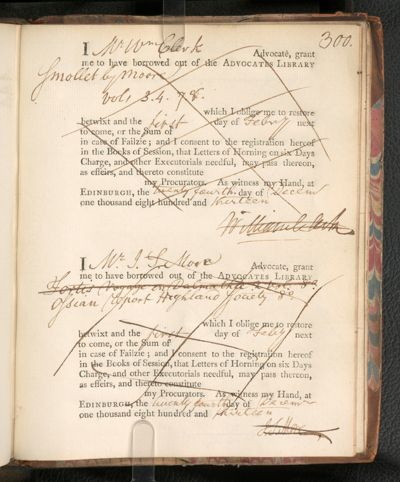 300.
I Mr Wm Clerk Advocate, grant
me to have borrowed out of the ADVOCATES LIBRARY
Smollet by Moore
vols 3. 4. 7. 8.
which I oblige me to restore
betwixt and the first day of Febry next
to come, or the Sum of
in case of Failzie; and I consent to the registration hereof
in the Books of Session, that Letters of Horning on six Days
Charge, and other Executorials needful, may pass thereon,
as effeirs, and thereto constitute
my Procurators. As witness my Hand, at
EDINBURGH, the twenty fourth day of Decemr
one thousand eight hundred and thirteen
William Clerk
I Mr. J. S. More Advocate, grant
me to have borrowed out of the ADVOCATES LIBRARY
Fortis Voyage Dalmatia
Ossian Report Highland Society 8o
which I oblige me to restore
betwixt and the first day of Febry next
to come, or the Sum of
in case of Failzie; and I consent to the registration hereof
in the Books of Session, that Letters of Horning on six Days
Charge, and other Executorials needful, may pass thereon,
as effeirs, and thereto constitute
my Procurators. As witness my Hand, at
EDINBURGH, the twenty fourth day of Decemr
one thousand eight hundred and thirteen
J S More